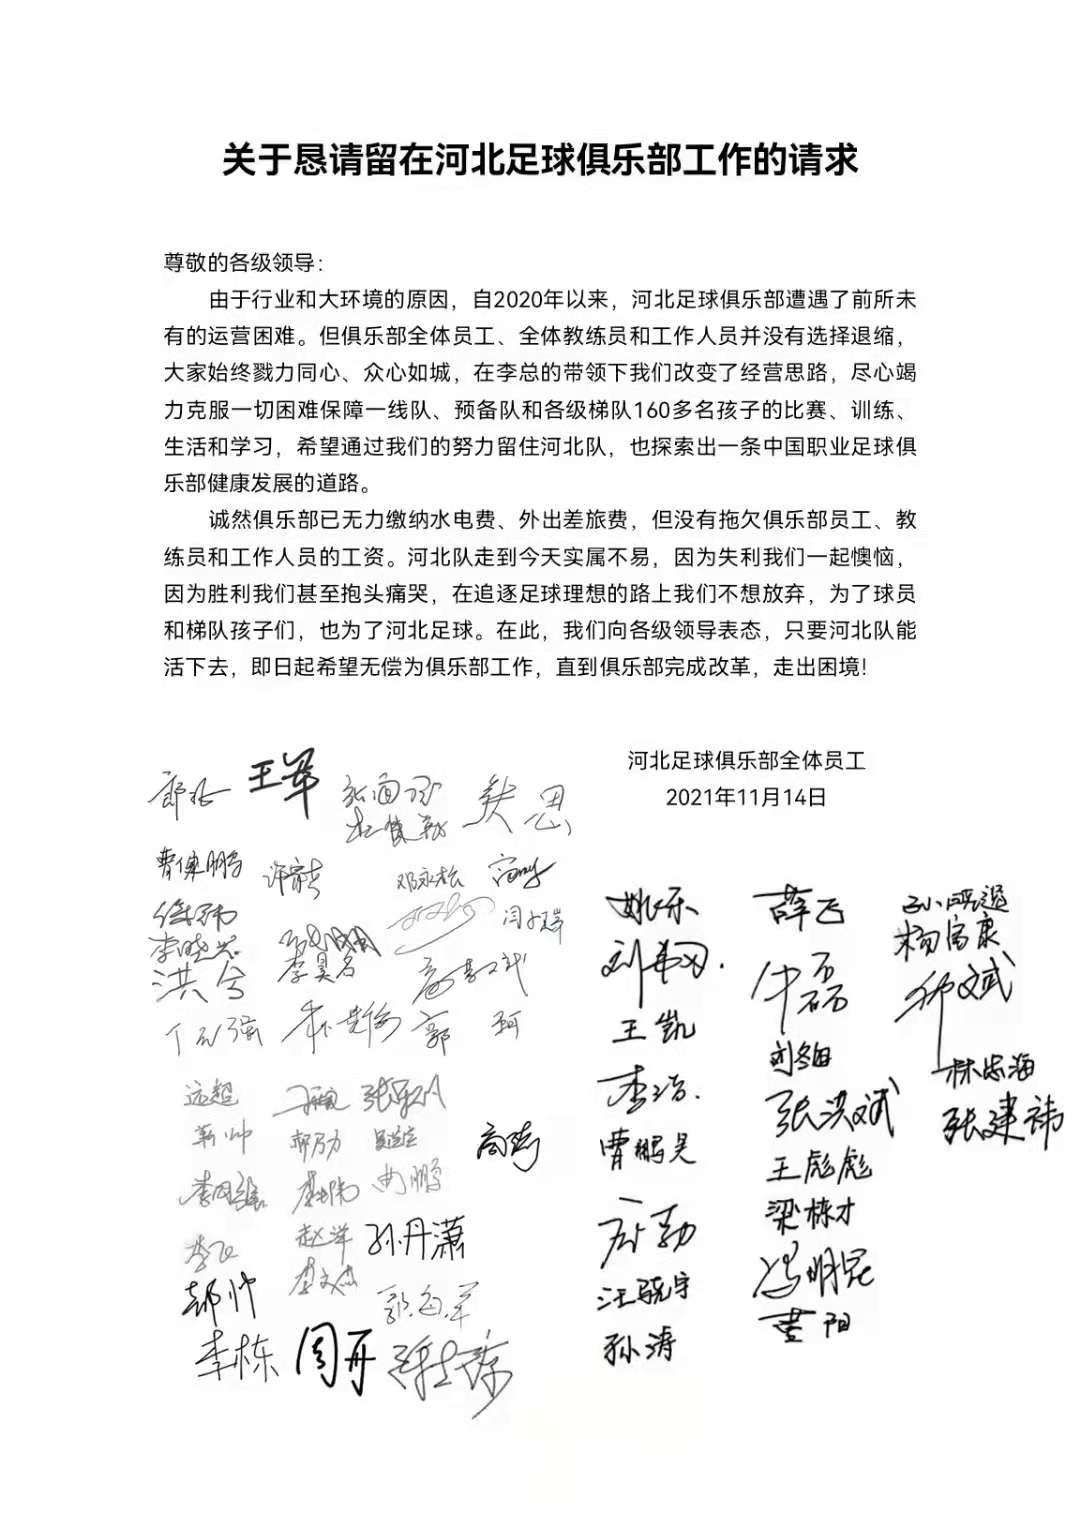 关于恳请留在河北足球俱乐部工作的请求
尊敬的各级领导：
由于行业和大环境的原因，自2020年以来，河北足球俱乐部遭遇了前所未
有的运营困难。但俱乐部全体员工、全体教练员和工作人员并没有选择退缩，
大家始终戮力同心、众心如城，在李总的带领下我们改变了经营思路，尽心竭
力克服一切困难保障一线队、预备队和各级梯队160多名孩子的比赛、训练、
生活和学习，希望通过我们的努力留住河北队，也探索出一条中国职业足球俱
乐部健康发展的道路。
诚然俱乐部已无力缴纳水电费、外出差旅费，但没有拖欠俱乐部员工、教
练员和工作人员的工资。河北队走到今天实属不易，因为失利我们一起懊恼，
因为胜利我们甚至抱头痛哭，在追逐足球理想的路上我们不想放弃，为了球员
和梯队孩子们，也为了河北足球。在此，我们向各级领导表态，只要河北队能
活下去，即日起希望无偿为俱乐部工作，直到俱乐部完成改革，走出困境！
河北足球俱乐部全体员工
2021年11月14日
王军
邓永松
李昊名
洪兮
远超
靳帅
曲鹏
赵洋
孙丹潇
李文杰
李栋
周冉
姚乐
薛飞
杨富康
王凯
林忠海
张洪斌
张建祎
曹鹏昊
王彪彪
梁栋才
汪骁宇
冯明冠
孙涛
董阳